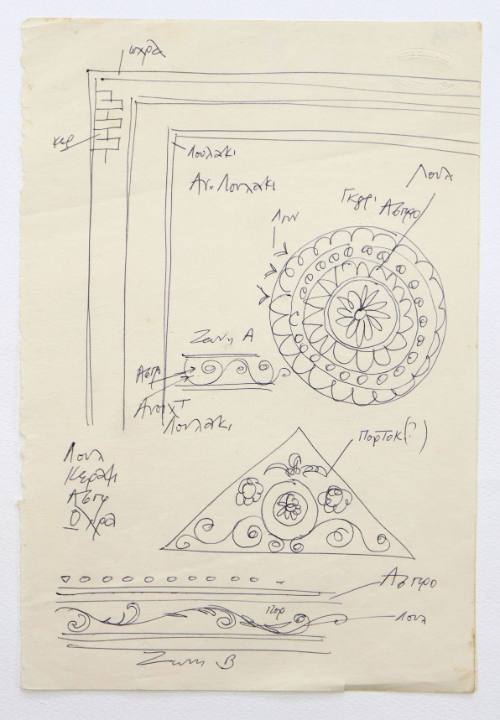 ωχρα
κερ
Λουλακι
Αν. Λουλακι
Λουλ
Γκρι
Ασπρο
Λουλ
Ζωνη Α
Ασπρ
Ανοιχτ
Λουλακι
Πορτοκ(?)
Λουλ
Κεραμ
Ασπρ
Ωχρα
Ασπρο
Πορ
Λουλ
Ζωνη Β